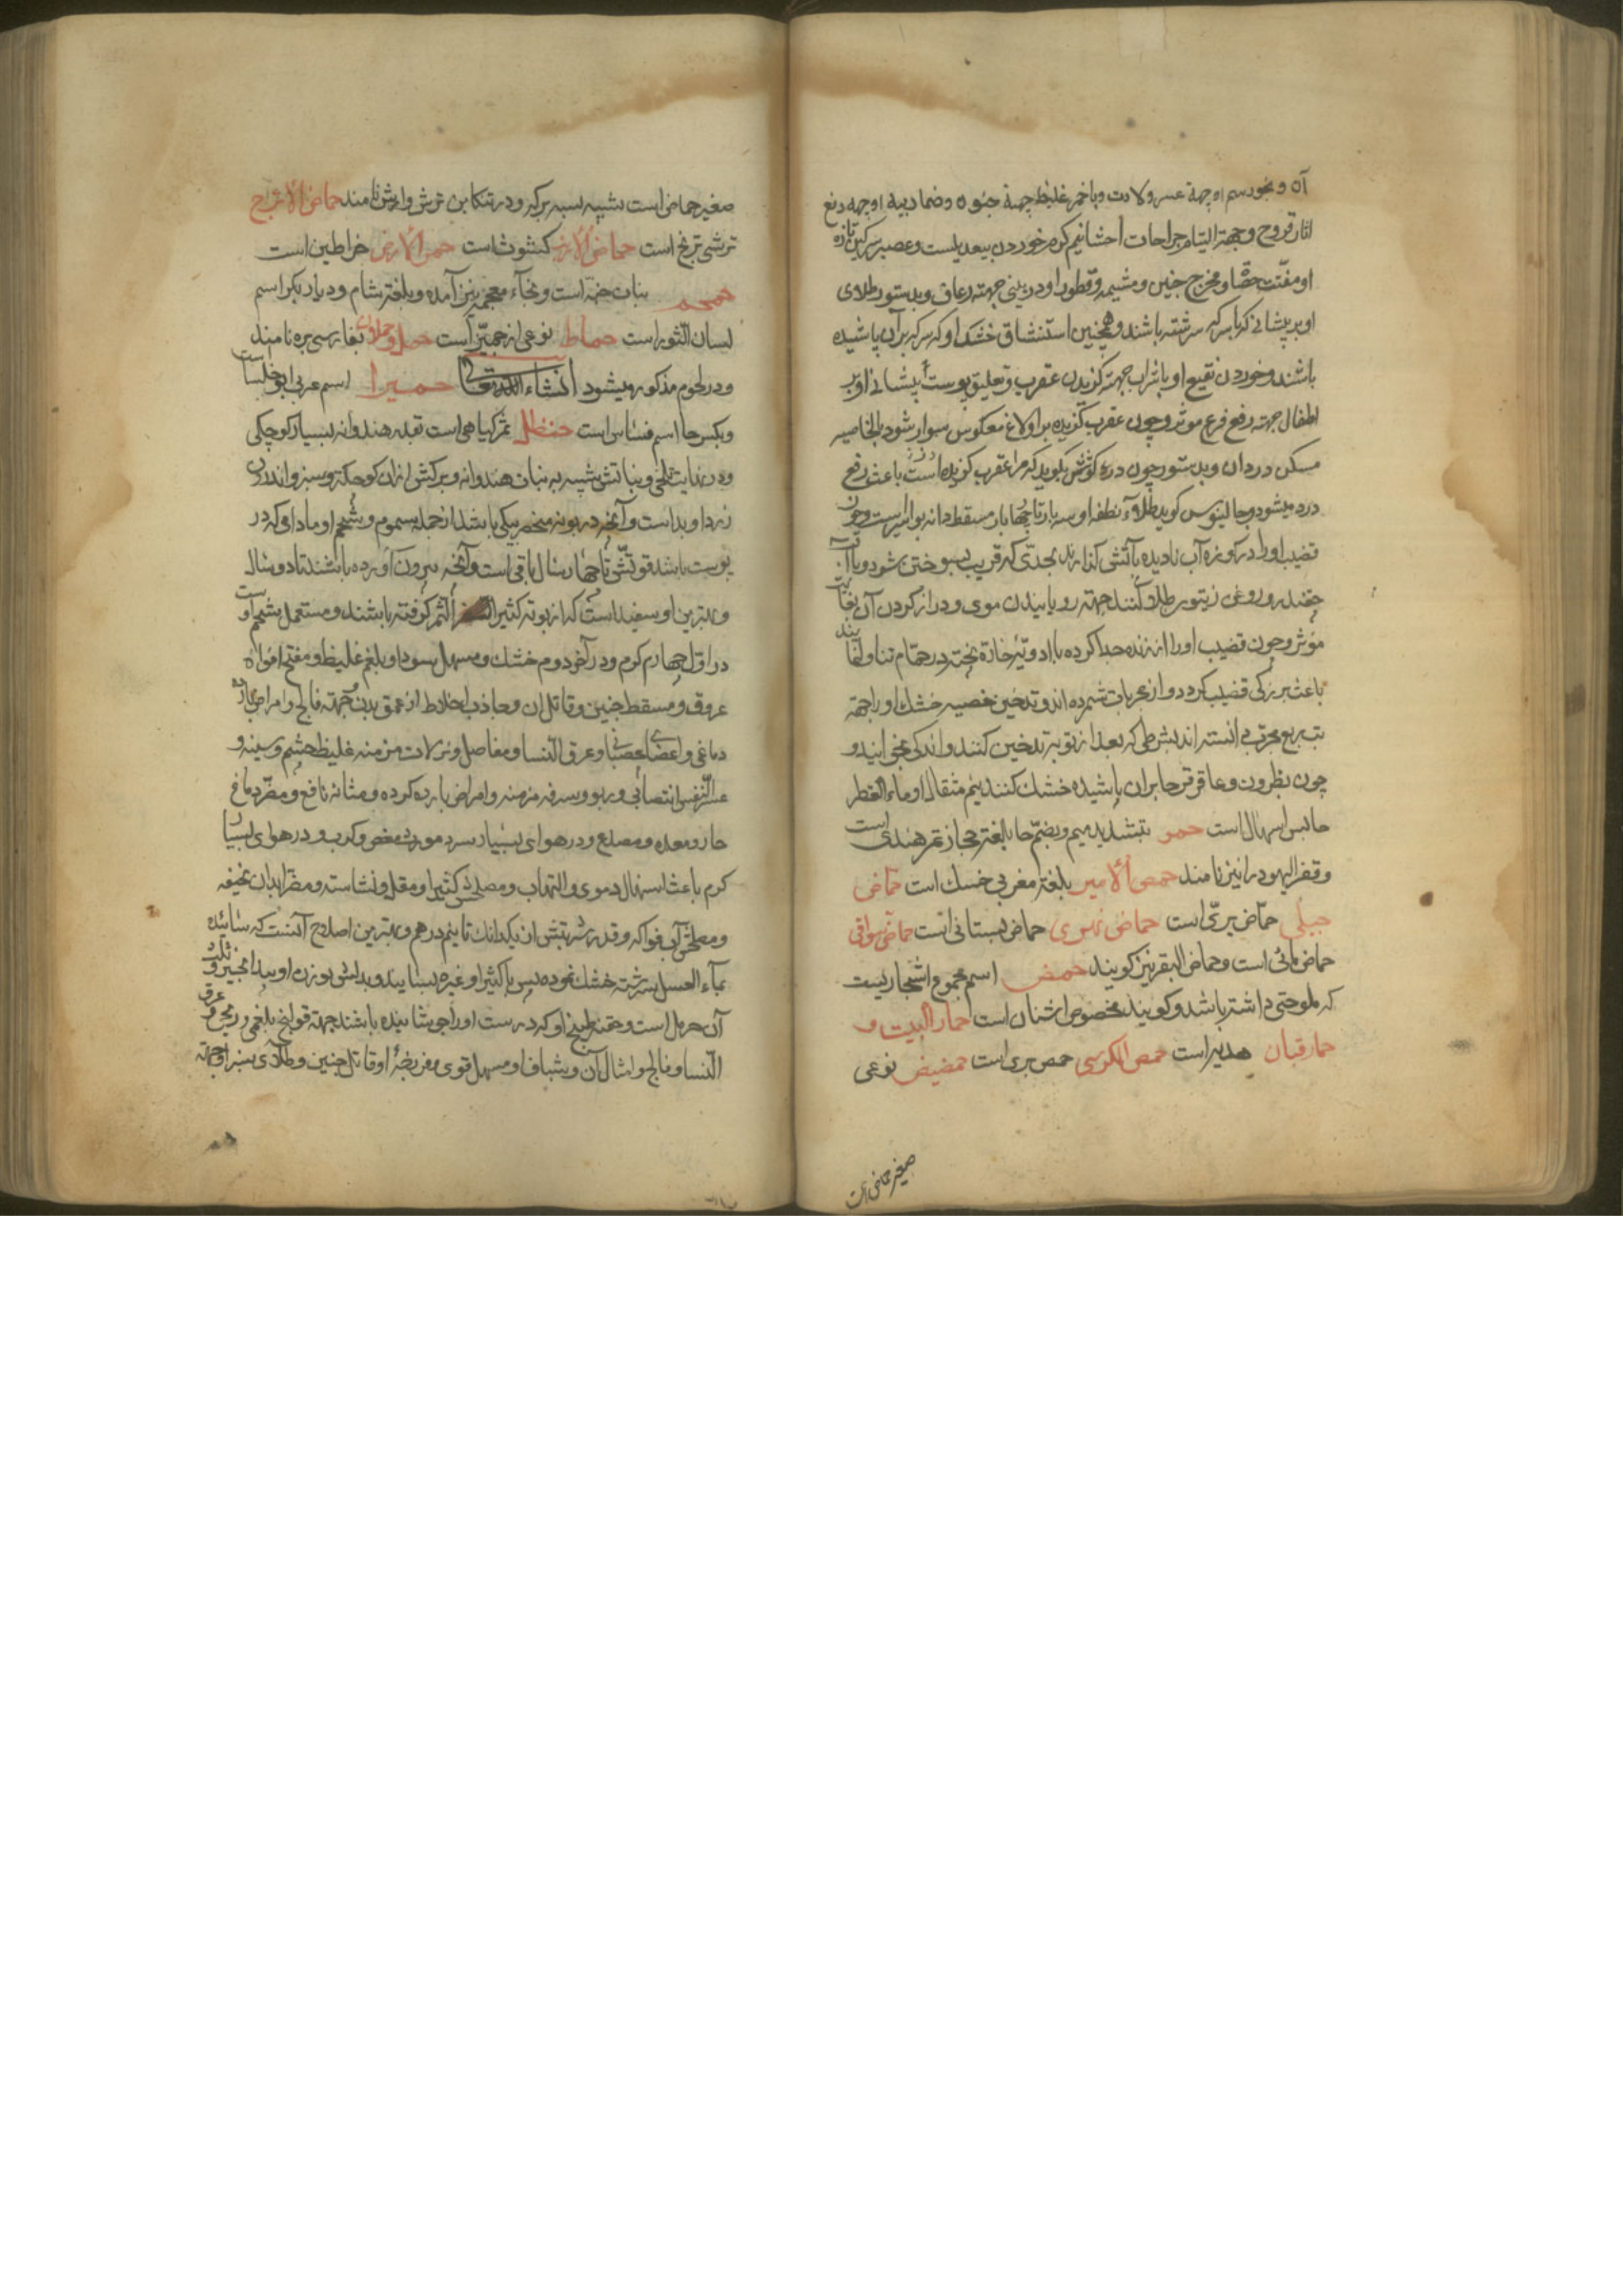 آن و بخور سم او جهة عسر ولادت و با خمر غلیظ جهة جنون و ضماد بیه او جهه دفع
اثار قروح و جهة التیام جراحات احشا نیم کرم خوردن بیعدیلست و عصیر سرکین تازه
او مفتت حصاة و مخرج جنین و مشیمه و قطور او در بینی جهته رعاف و بدستور طلای
او بر پیشانی که با سرکه سرشته باشند و همچنین استنشاق خشک او که سرکه بر آن پاشیده
باشند و خوردن نقیع او با شراب جهته کزیدن عقرب و تعلیق پوست پیشانی او بر
اطفال جهته رفع فزع موثر و چون عقرب کزیده بر اولاغ معکوس سوار شود بالخاصیه
مسکن درد آن و بدستور چون در کوش بکوید که مرا عقرب کزیده است باعث رفع
درد میشود و جالینوس کوید طلاء نطفه او سه بار تا چهار بار مسقط دانه بواسیر است و چون
قضیب او را در کوزه آب نادیده با آتش کذارند بحدی که قریب بسوختن شود و با آب
چقندر و روغن زیتون طلا کنند جهته رویانیدن موی و دراز کردن آن بغایت
مؤثر و چون قضیب او را از زنده جدا کرده با ادویه حاره پخته در حمام تناول نمایند
باعث بزرکی قضیب کردد و از مجربات شمرده اند و تدخین خصیه خشک او را جهته
تب ربع مجرب دانسته اند بشرطی که بعد از نوبه تدخین کنند و اندکی بخورند و
چون نطرون و عاقرقرحا بر آن پاشیده خشک کنند نیم مثقال او ماء القطر
حابس اسهال است حمر بتشدید میم و بضم حا بلغته حجاز تمر هندی است
و قفر الیهود را نیز نامند حمص الامیر بلغته مغربی خسک است حماض
جبلی حماض بری است حماض نهری حماض بستانی است حماض سواقی
حماض مائی است و حماض البقر نیز کویند حمض اسم مجموع اشجاریست
که ملوحتی داشته باشد و کویند مخصوص اشنان است حمار البیت و
حمار قبان هدبه است حمص الکرسی حمص بری است حمضیض نوعی
صغیر حماض است
صغیر حماض است شبیه بسه برکه و در تنکابن ترش واش نامند حماض الاترج
ترشی ترنج است حماض الارنب کشوث است حمر الارض خراطین است
حمحم بنات خمه است و بخاء معجمه نیز آمده و بلغته شام و دیار بکر اسم
لسان الثور است حماط نوعی از جمیز است حمل و حملان بفارسی بره نامند
و در لحوم مذکور میشود انشاء الله تعالی حمیرا اسم عربی ابوخلسا است
و بکسر حا اسم فساس است حنظل ثمر کیاهی است بقدر هندوانه بسیار کوچکی
و در نهایت تلخی و نباتش شبیه به نبات هندوانه و برکش از آن کوچکتر و سبز و اندرون
زرد او بد است و آنچه در بوته منحصر بیکی باشد از جمله سموم و شحم او مادامی که در
پوست باشد قوتش تا چهار سال باقی است و آنچه بیرون آورده باشند تا دو سال
و بهترین او سفید است که از بوته کثیر الثمر کرفته باشند و مستعمل شحم اوست
در اول چهارم کرم و در آخر دوم خشک و مسهل سودا و بلغم غلیظ و مفتح افواه
عروق و مسقط جنین و قاتل آن و جاذب اخلاط از عمق بدن و جهته فالج و امراض بارده
دماغی و اعضای عصبانی و عرق النسا و مفاصل و نزلات مزمنه غلیظ چشم و سینه و
عسر النفس انتصابی و ربو و سرفه مزمنه و امراض بارده کرده و مثانه نافع و مضر دماغ
حار و معده و مصدع و در هوای بسیار سرد مورث مغص و کرب و در هوای بسیار
کرم باعث اسهال دموی و التهاب و مصلحش کثیرا و مقل و نشاسته و مضر ابدان نحیفه
و مصلحش آب فواکه و قدر شربتش از یکدانک تا نیم درهم و بهترین اصلاح آنست که سائیده
بماء العسل سرشته خشک نموده پس با کثیرا و غیره بسایند و بدلش بوزن او بید انجیر و ثلث
آن حرمل است و حقنه طبیخ او که درست او را جوشانیده باشند جهته قولنج بلغمی و ریحی و عرق
النسا و فالج و امثال آن و شیاف او مسهل قوی و فرزجهٔ او قاتل جنین و طلای سبز او جهته